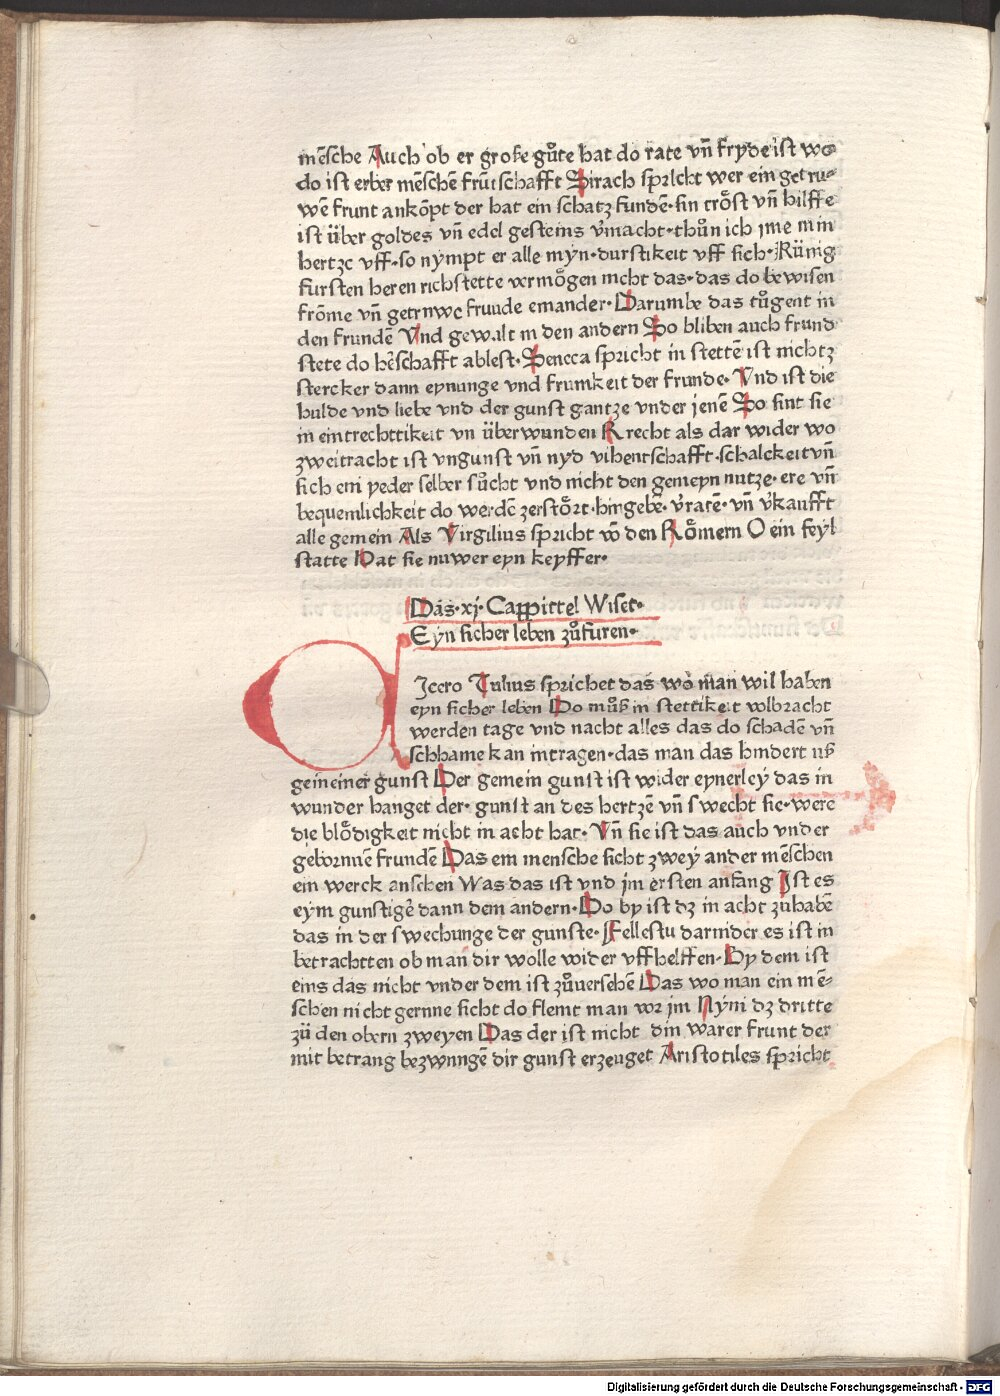 mēsche Auch ob er große gůte hat do rate vñ fryde ist wo
do ist erber mēschē frūtschafft Sirach spricht wer ein getru⸗
wē frunt ankōpt der hat ein schatz fundē· sin trőst vñ hilffe
ist über goldes vñ edel gesteins v̄macht· thůn ich jme min
hertze vff· so nympt er alle myn· durstikeit vff sich· Künig
fursten heren richstette vermőgen nicht das· das do bewisen
frōme vñ getruwe fruude einander· Darumbe das tůgent in
den frundē Vnd gewalt in den andern So bliben auch frund
stete do hēschafft ablest· Seneca spricht in stettē ist nichtz
stercker dann eynunge vnd frumkeit der frunde· Vnd ist die
hulde vnd liebe vnd der gunst gantze vnder jenē So sint sie
in eintrechttikeit vn überwunden Rrecht als dar wider wo
zweitracht ist vngunst vñ nyd vihentschafft· schalckeit vñ
sich ein yeder selber sůcht vnd nicht den gemeyn nutze· ere vñ
bequemlichkeit do werdē zerstőrt· hingebē· v̄ratē· vñ v̄kaufft
alle gemein Als Virgilius spricht vō den Rőmern O ein feyl
statte Hat sie nuwer eyn keyffer·
Das·xj· Cappittel Wiset·
Eyn sicher leben zůfuren·
Cicero Tulius sprichet das wo man wil haben
eyn sicher leben Do můß in stettikeit volbracht
werden tage vnd nacht alles das do schadē vñ
schhame kan intragen· das man das hindert uß
gemeiner gunst Der gemein gunst ist wider eynerley das in
wunder hanget der· gunst an des hertzē vñ swecht sie· were
die blődigkeit nicht in acht hat· Vñ sie ist das auch vnder
gebornne frundē Das ein mensche sicht zwey ander mēschen
ein werck ansehen Was das ist vnd jm ersten anfang Ist es
eym gunstigē dann dem andern· Do by ist dz in acht zůhabē
das in der swechunge der gunste· Fellestu darnider es ist in
betrachtten ob man dir wolle wider vffhelffen· By dem ist
eins das nicht vnder dem ist zůversehē Das wo man ein mē⸗
schen nicht gernne sicht do flemt man vor jm Nym dz dritte
zü den obern zweyen Das der ist nicht din warer frunt der
mit betrang bezwnngē dir gunst erzeuget Aristotiles spricht
Digitalisierung gefördert durch die Deutsche Forschungsgemeinschaft - DFG